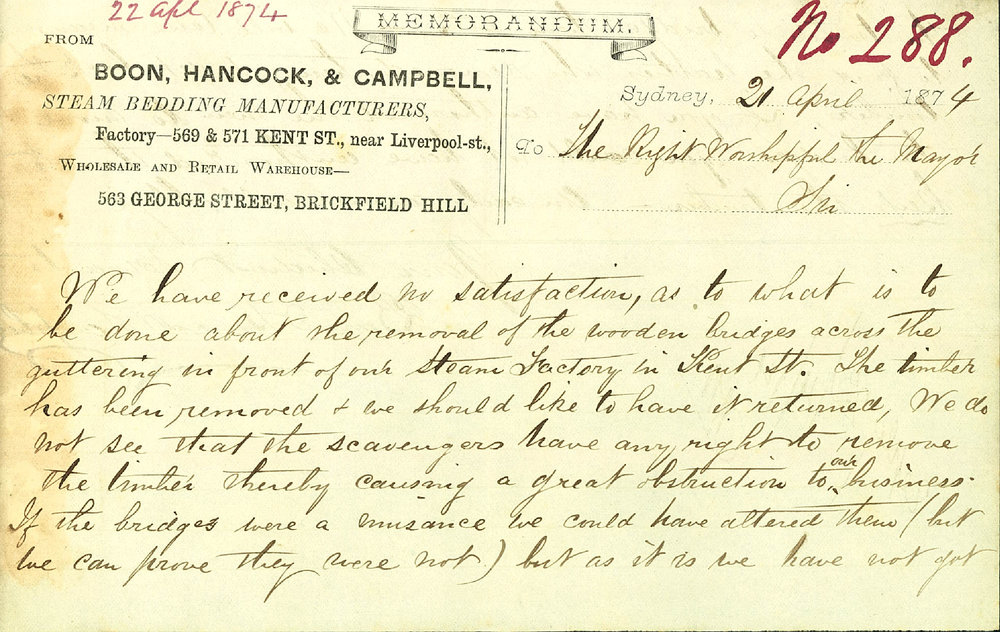 22 Apl 1874
MEMORANDUM.
No 288.
FROM
BOON, HANCOCK, & CAMPBELL,
STEAM BEDDING MANUFACTURERS,
Factory—569 & 571 KENT ST., near Liverpool-st.,
WHOLESALE AND RETAIL WAREHOUSE—
563 GEORGE STREET, BRICKFIELD HILL
Sydney, 21 April 1874
To The Right Worshipful the Mayor
Sir
We have received no satisfaction, as to what is to
be done about the removal of the wooden bridges across the
guttering in front of our Steam Factory in Kent St. The timber
has been removed & we should like to have it returned, We do
not see that the scavengers have any right to remove
the timber thereby causing a great obstruction to our business.
If the bridges were a nuisance we could have altered them (but
we can prove they were not) but as it is we have not got